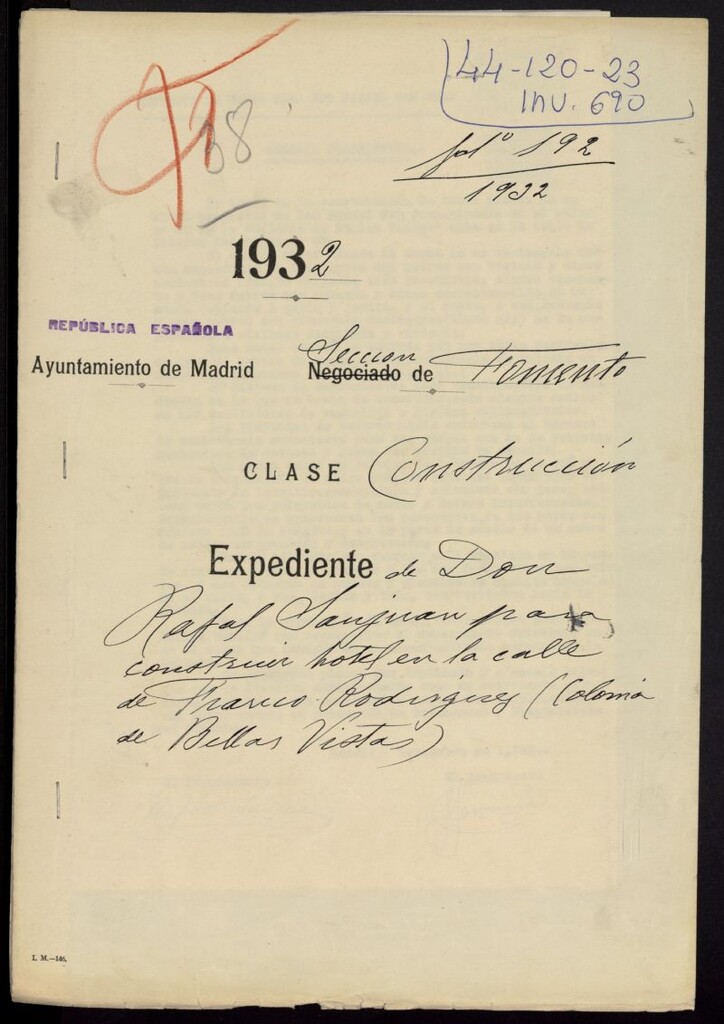 44-120-23
Inv. 690
fol° 192
1932
38
1932
REPÚBLICA ESPAÑOLA
Ayuntamiento de Madrid
Seccion
Negociado de Fomento
CLASE Construcción
Expediente de Don
Rafal Sanjuan para
construir hotel en la calle
de Franco Rodriguez (Colonia
de Bellas Vistas)
I. M.—146.